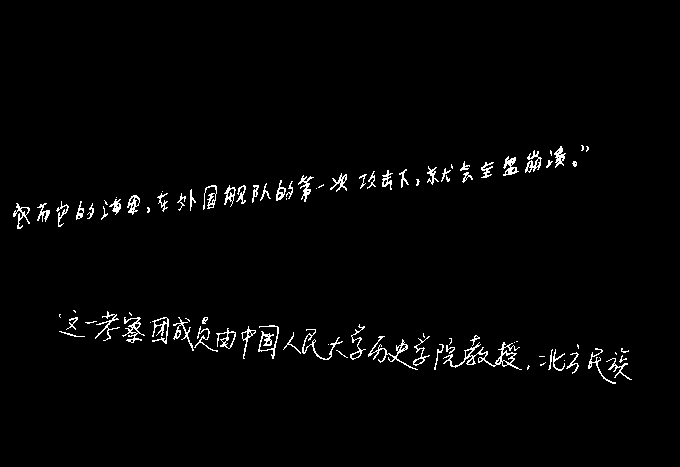 它的海军,在外国舰队的第一次攻击下,就会全盘崩溃。”
这一考察团成员由中国人民大学历史学院教授,北方民族